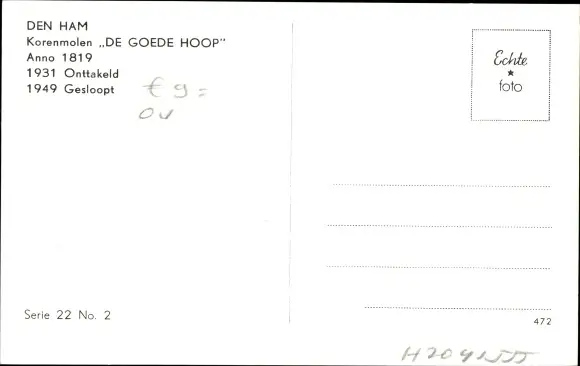 DEN HAM
Korenmolen „DE GOEDE HOOP"
Anno 1819
1931 Onttakeld
1949 Gesloopt
€ 9 =
OV
Echte
★
foto
Serie 22 No. 2
472